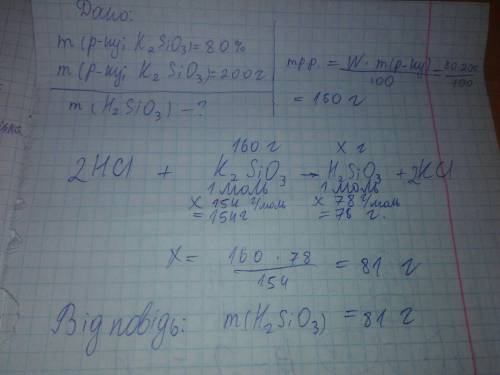 Дано:
m (р-ну; K₂SiO₃) = 80%
m (р-ну; K₂SiO₃) = 200г
m (H₂SiO₃) - ?
mр.р. = W · m(р-ну) / 100 = 80·200 / 100
= 160 г
160 г x г
2HCl + K₂SiO₃ → H₂SiO₃ + 2KCl
1 моль 1 моль
x 154 г/моль x 78 г/моль
= 154г = 78 г.
X = 160 · 78 / 154 = 81 г
Відповідь: m(H₂SiO₃) = 81 г